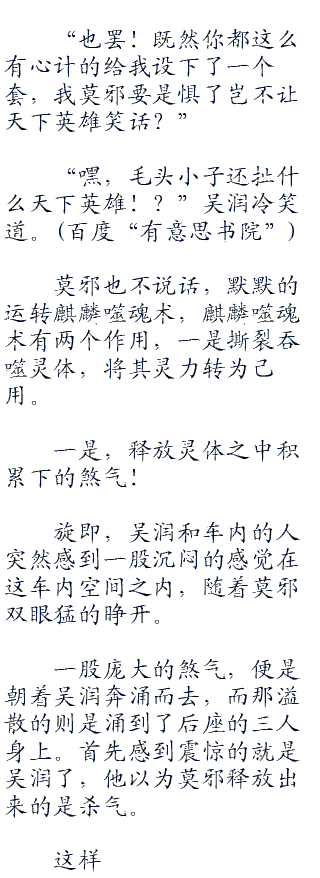 “也罢！既然你都这么
有心计的给我设下了一个
套，我莫邪要是惧了岂不让
天下英雄笑话？”
“嘿，毛头小子还扯什
么天下英雄！？”吴润冷笑
道。(百度“有意思书院”)
莫邪也不说话，默默的
运转麒麟噬魂术，麒麟噬魂
术有两个作用，一是撕裂吞
噬灵体，将其灵力转为己
用。
一是，释放灵体之中积
累下的煞气！
旋即，吴润和车内的人
突然感到一股沉闷的感觉在
这车内空间之内，随着莫邪
双眼猛的睁开。
一股庞大的煞气，便是
朝着吴润奔涌而去，而那溢
散的则是涌到了后座的三人
身上。首先感到震惊的就是
吴润了，他以为莫邪释放出
来的是杀气。
这样